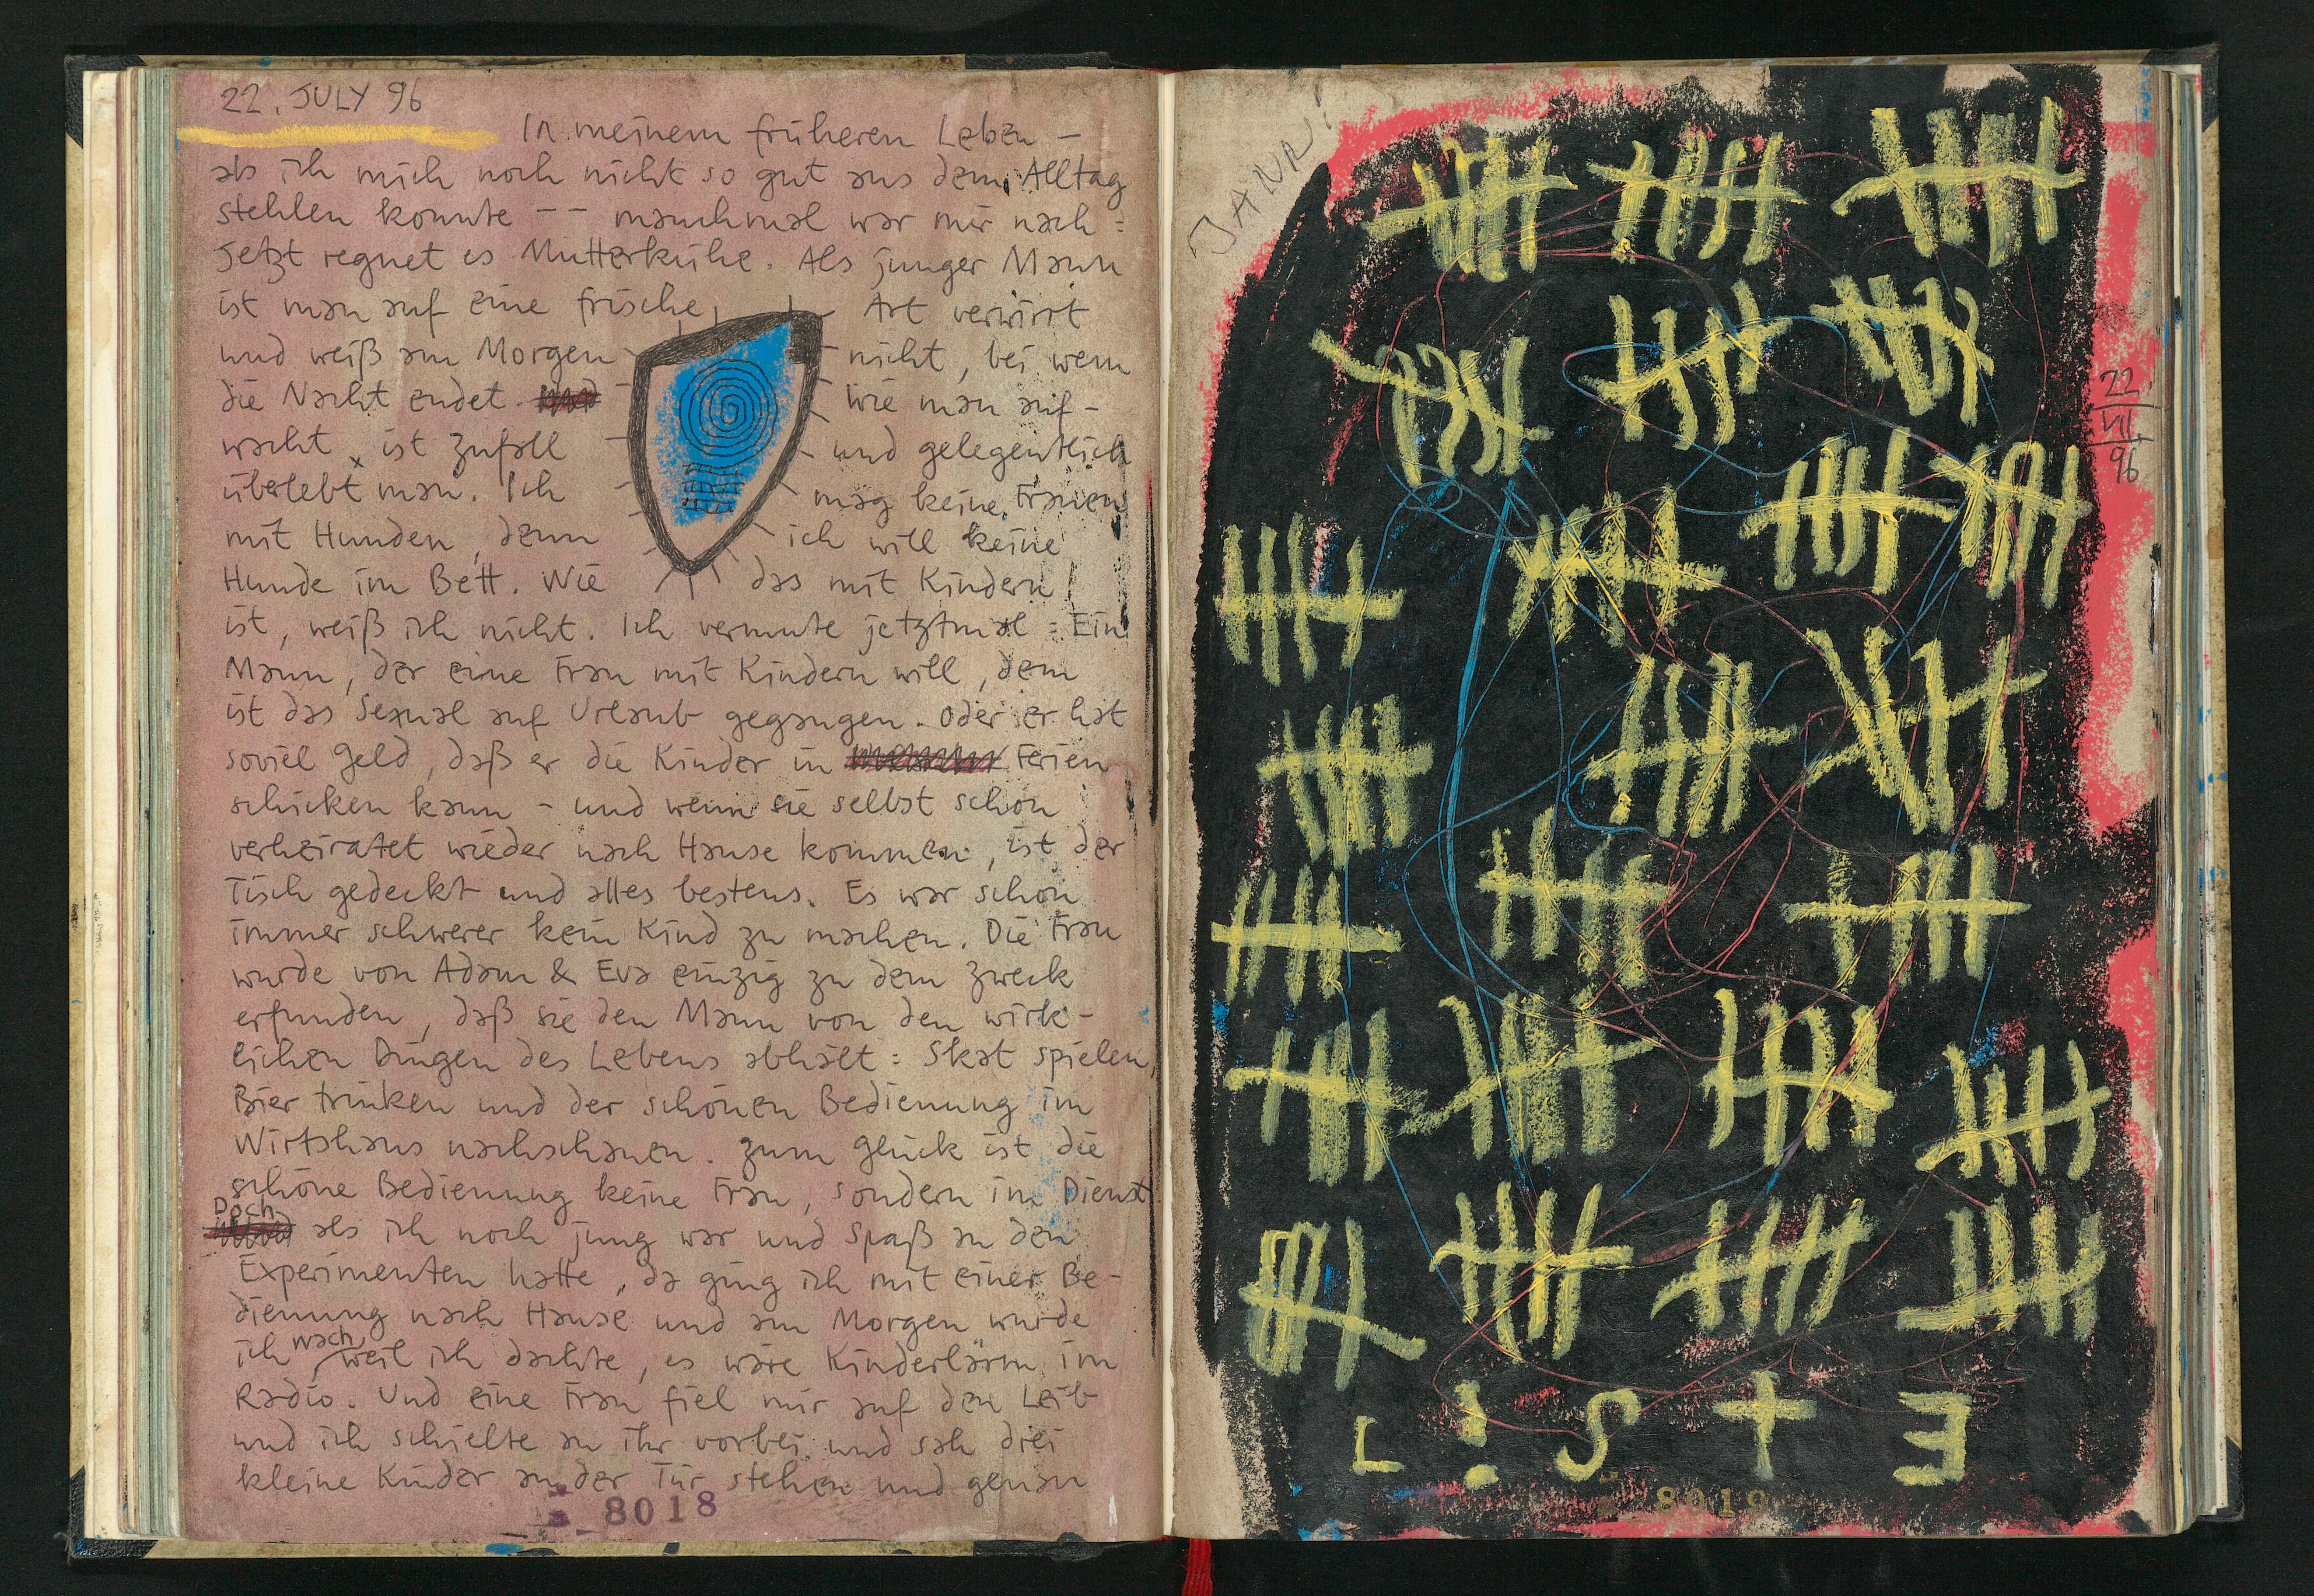 22. JULY 96
In meinem früheren Leben –
als ich mich noch nicht so gut aus dem Alltag
stehlen konnte –– manchmal war mir nach :
Jetzt regnet es Mutterkühe. Als junger Mann
ist man auf eine frische Art verwirrt
und weiß am Morgen nicht, bei wem
die Nacht endet. Wie man auf-
wacht, ist Zufall und gelegentlich
überlebt man. Ich mag keine Frauen
mit Hunden, denn ich will keine
Hunde im Bett. Wie das mit Kindern
ist, weiß ich nicht. Ich vermute jetztmal : Ein
Mann, der eine Frau mit Kindern will, dem
ist das Sexual auf Urlaub gegangen. Oder er hat
soviel Geld, daß er die Kinder in Ferien
schicken kann – und wenn sie selbst schon
verheiratet wieder nach Hause kommen, ist der
Tisch gedeckt und alles bestens. Es war schon
immer schwerer kein Kind zu machen. Die Frau
wurde von Adam & Eva einzig zu dem Zweck
erfunden, daß sie den Mann von den wirk-
lichen Dingen des Lebens abhält : Skat spielen,
Bier trinken und der schönen Bedienung im
Wirtshaus nachschauen. Zum Glück ist die
schöne Bedienung keine Frau, sondern im Dienst
Doch als ich noch jung war und Spaß an den
Experimenten hatte, da ging ich mit einer Be-
dienung nach Hause und am Morgen wurde
ich wach, weil ich dachte, es wäre Kinderlärm im
Radio. Und eine Frau fiel mir auf den Leib
und ich schielte an ihr vorbei und sah drei
kleine Kinder an der Tür stehen und genau
8018
JANR!
22
VII
96
L!STE
8019